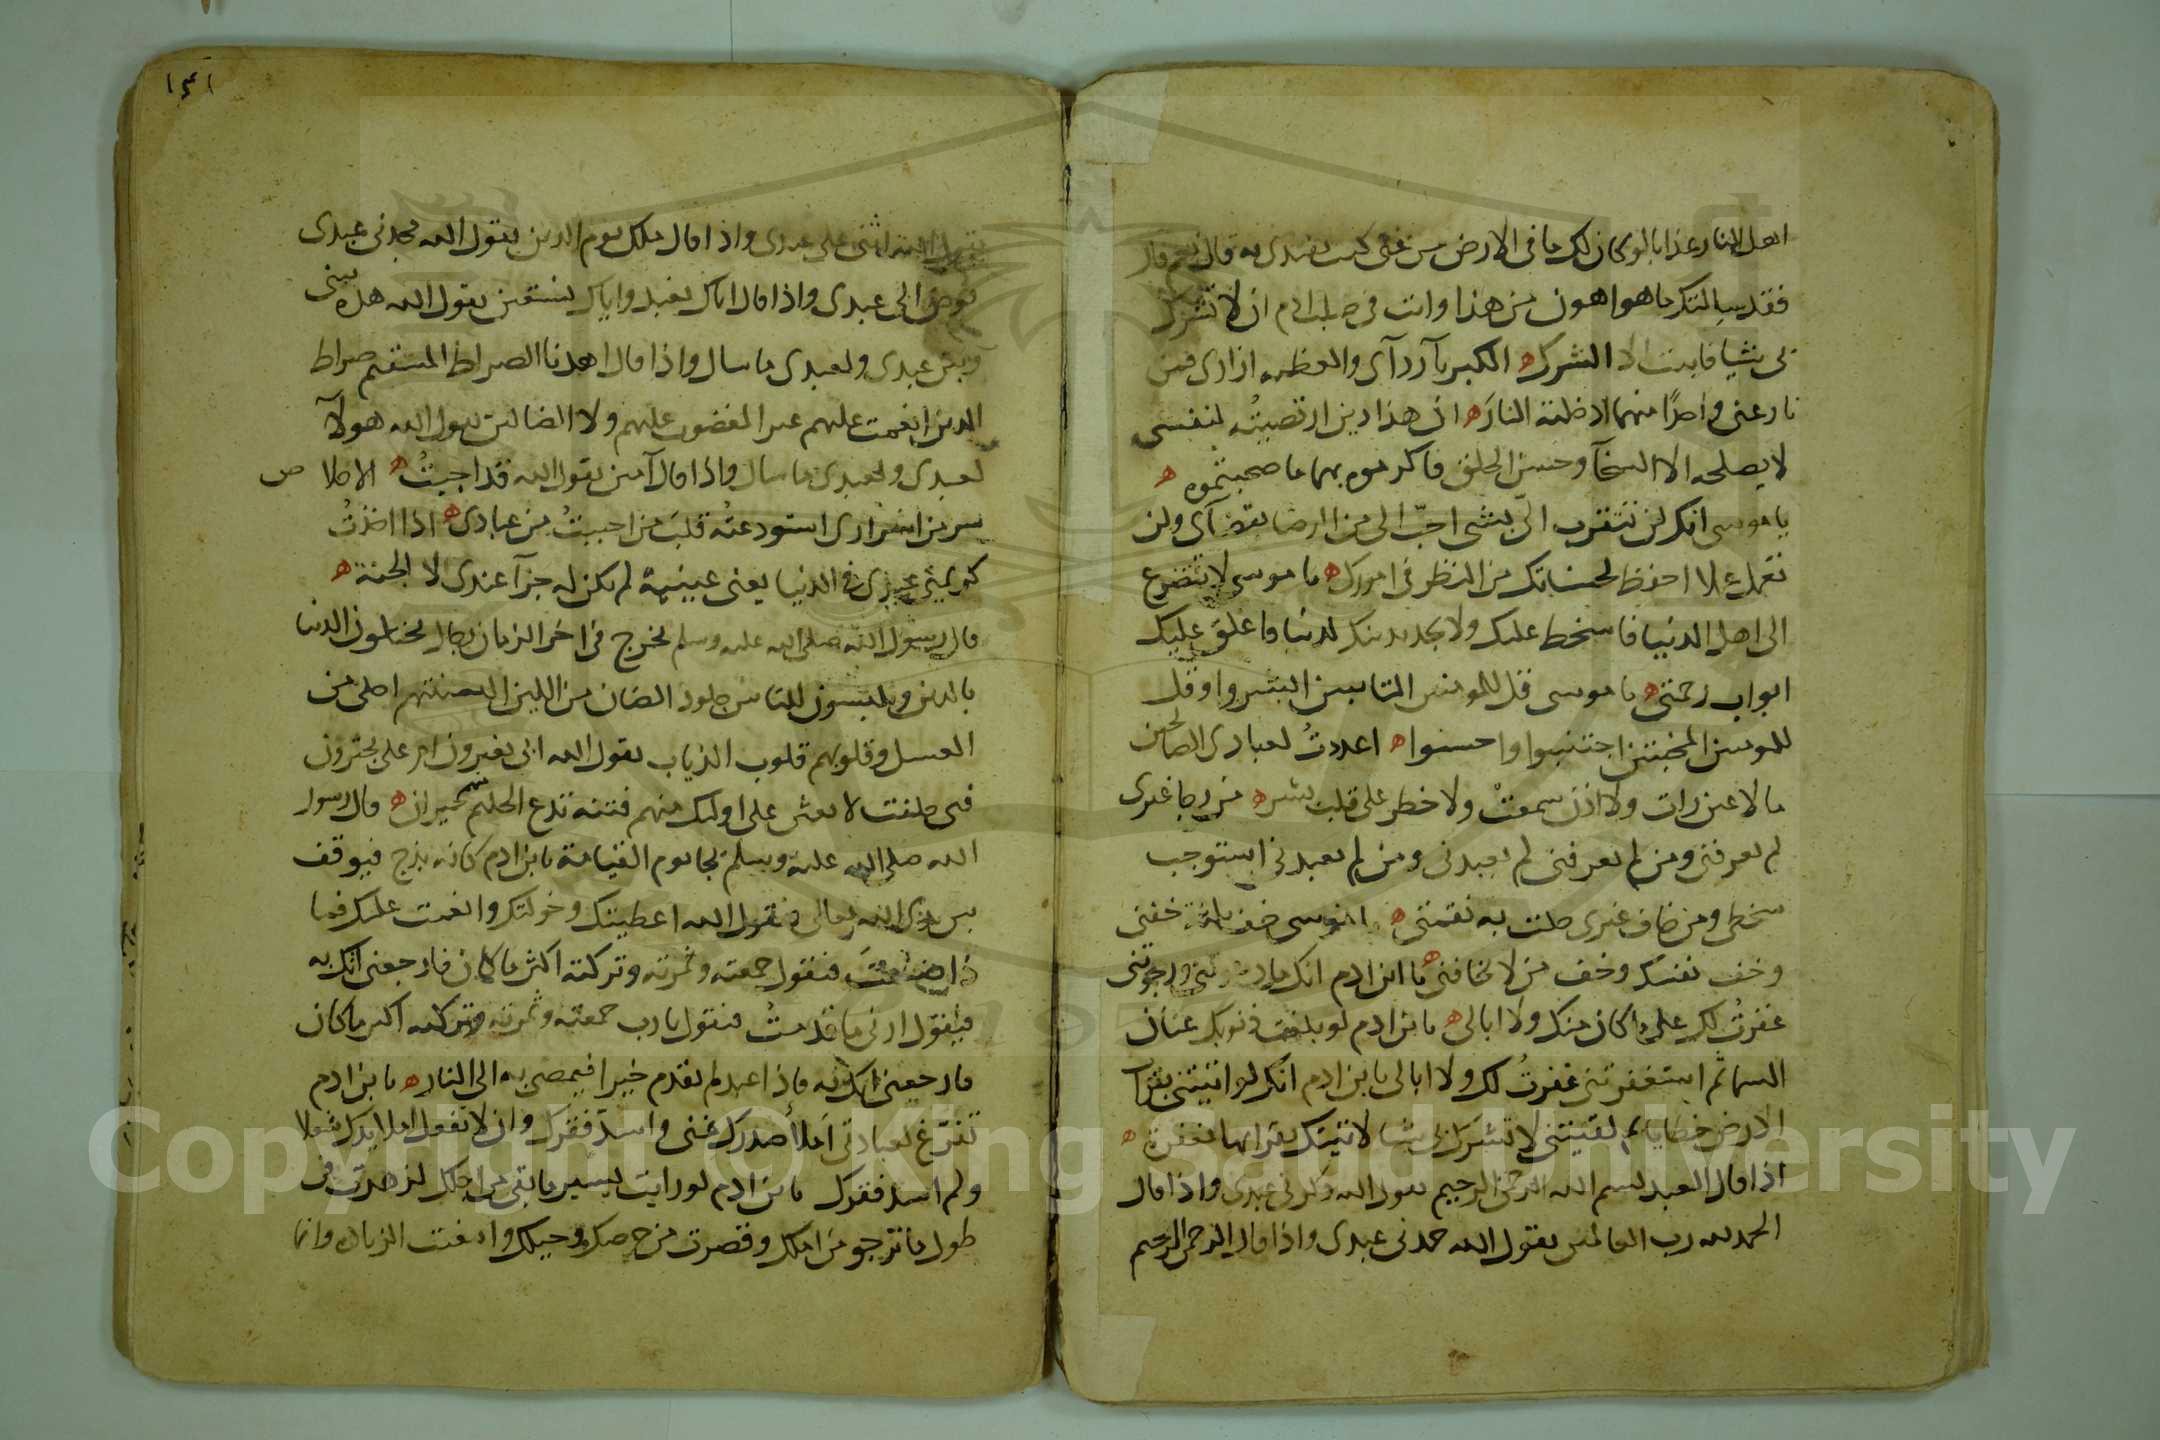 اهل النار عذابا لو كان لك ما في الارض من شي كنت تفتدي به قال نعم قال
فقد سالتك ما هو اهون من هذا وانت في صلب ادم ان لا تشرك
بي شيا فابيت الا الشرك ه الكبريآ ردآي والعظمه ازاري فمن
نازعني واحدًا منهما ادخلته النارَ ه ان هذا دين ارتضيتُه لنفسي
لا يصلحه الا السخآ وحسن الخلق فاكرموه بهما ما صحبتموه ه
يا موسى انك لن تتقرب الىّ بشي احبّ الي من الرضا بقضآي ولن
تعمل عملا احفظ لحسناتك من النظر في امورك ه يا موسى لا تتضرع
الى اهل الدنيا فاسخط عليك ولا تجد بدينك لدنيا واغلق عليك
ابواب رحمتي ه يا موسى قل للمومنين التايبين ابشروا وقل
للمومنين المخبتين اجتنبوا واحسنوا ه اعددتُ لعبادي الصالحين
ما لا عين رات ولا اذن سمعتْ ولا خطر على قلب بشر ه من رجا غيري
لم يعرفني ومن لم يعرفني لم يعبدني ومن لم يعبدني استوجب
سخطي ومن خاف غيري حلت به نقمتي ه يا موسى خف خفني
وخف نفسك وخف من لا يخافني ه يا ابن ادم انك ما دعوتني ورجوتني
غفرتُ لك على ما كان منك ولا ابالي ه يا بن ادم لو بلغت ذنوبك عنان
السما ثم استغفرتني غفرتُ لك ولا ابالي يا بن ادم انك لو اتيتني بقراب
الارض خطايا ثم لقيتني لا تشرك بي شيا لاتيتك بقرابها مغفرة ه
اذا قال العبد بسم الله الرحمن الرحيم يقول الله ذكرني عبدي واذا قال
الحمد لله رب العالمين يقول الله حمدني عبدي واذا قال الرحمن الرحيم
١٤١
يقول الله اثنى على عبدي واذا قال ملك يوم الدين يقول الله مجدني عبدي
فوض الي عبدي واذا قال اياك نعبد واياك نستعين يقول الله هذه بيني
وبين عبدي ولعبدي ما سال واذا قال اهدنا الصراط المستقيم صراط
الذين انعمت عليهم غير المغضوب عليهم ولا الضالين يقول الله هولآ
لعبدي ولعبدي ما سال واذا قال آمين يقول الله قد اجبتُ ه الاخلاص
سر من اسراري استودعته قلبَ من احببتُ من عبادي ه اذا اخذتُ
كريمتي عبدي في الدنيا يعني عينيه لم يكن له جزآ عندي الا الجنة ه
قال رسول الله صلى الله عليه وسلم يخرج في اخر الزمان رجال يختلون الدنيا
بالدين ويلبسون للناس جلود الضان من اللين السنتهم احلى من
العسل وقلوبهم قلوب الذياب يقول الله ابي يغترون ام علي يجترون
فبي حلفت لابعثن على اوليك منهم فتنة تدع الحليم منهم حيران ه قال رسول
الله صلى الله عليه وسلم يجا يوم القيامة بابن ادم كانه بذج فيوقف
بين يدي الله تعالى فيقول الله اعطيتك وخولتك وانعمت عليك فما
ذا صنعتَ فيقول جمعته وثمرته وتركته اكثر ما كان فارجعني اتك به
فيقول ارني ما قدمتُ فيقول يا رب جمعته وثمرته وتركته اكثر ما كان
فارجعني اتك به فاذا عبد لم يقدم خيرا فيمضى به الى النار ه يا بن ادم
تفرّغ لعبادتي املأ صدرك غنى واسد فقرك وان لا تفعل املا يدك شغلا
ولم اسد فقرك يا بن ادم لو رايت يسير ما بقي من اجلك لزهدت في
طول ما ترجو من املك وقصرت من حرصك وحيلك الزياده وانما